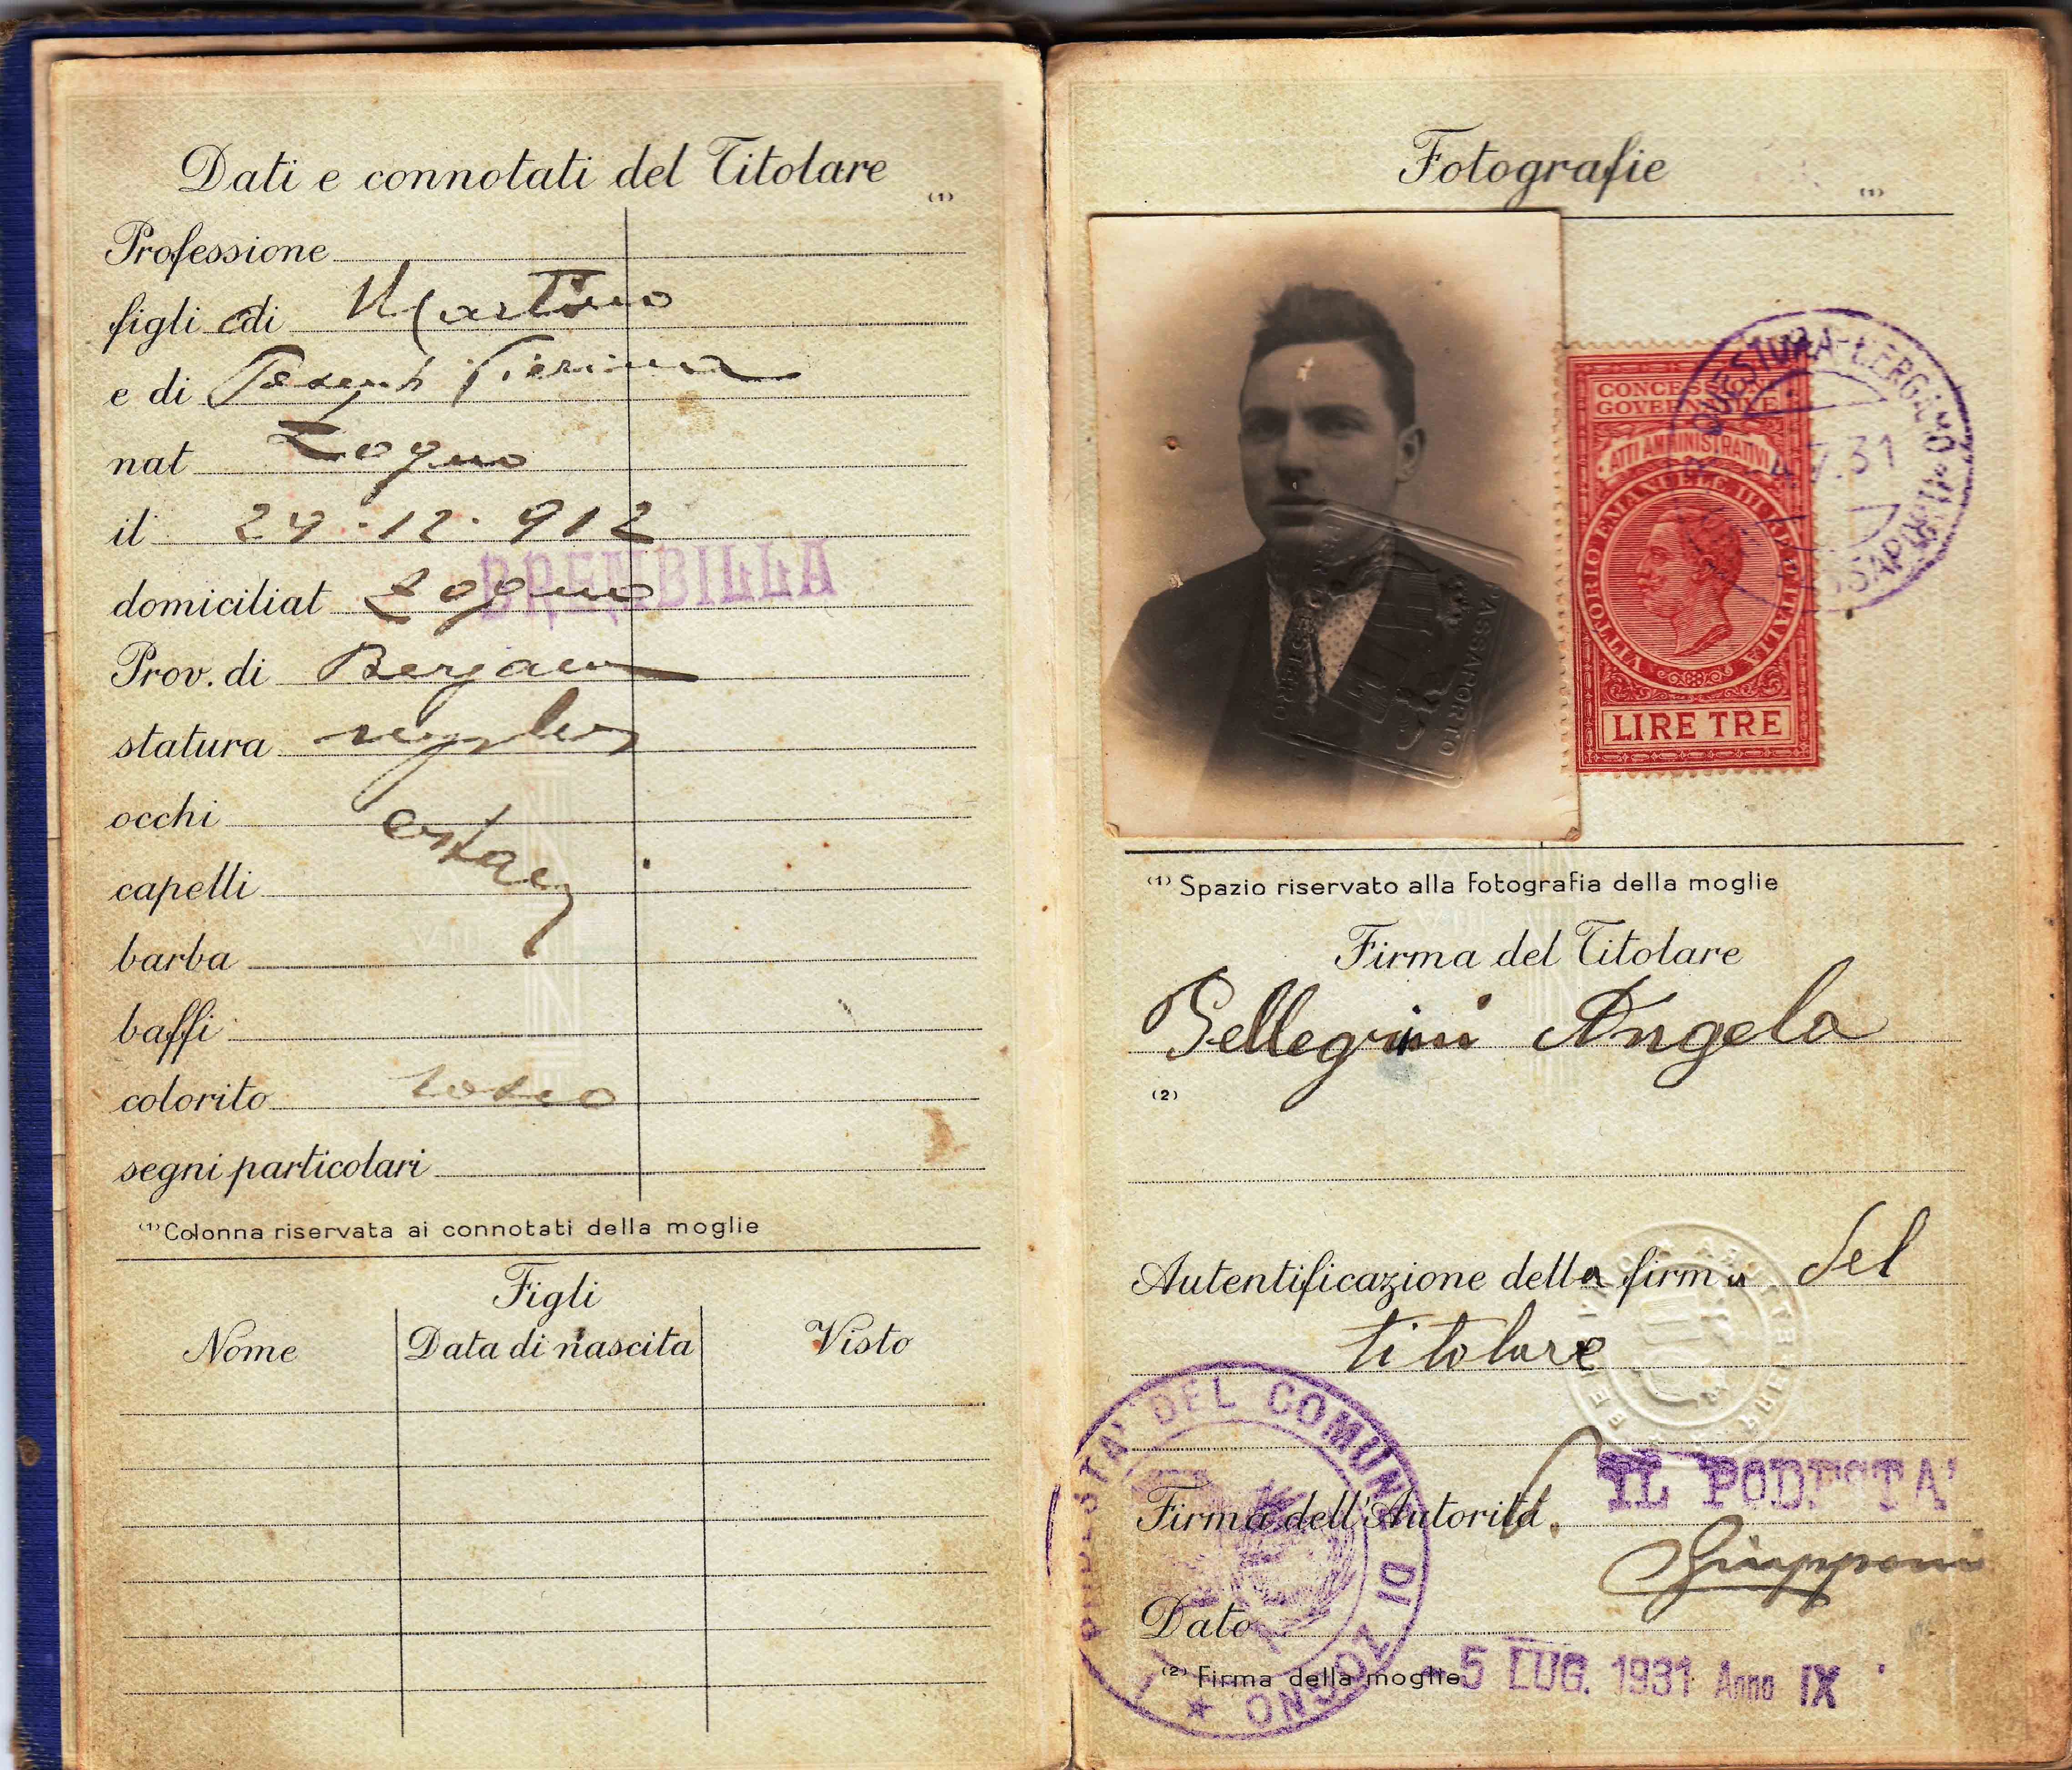 Dati e connotati del Titolare (1)
Professione
figli o di Martino
e di Pesenti Pierina
nat Zogno
il 24.12.912
BREMBILLA
domiciliat Zogno
Prov. di Bergamo
statura
occhi
capelli
barba
baffi
colorito roseo
segni particolari
(1) Colonna riservata ai connotati della moglie
Figli
Nome Data di nascita Visto
Fotografie (1)
QUESTURA BERGAMO
31
CONCESSIONE
GOVERNATIVE
ATTI AMMINISTRATIVI
VITTORIO EMANUELE III RE D'ITALIA
LIRE TRE
PASSAPORTO
(1) Spazio riservato alla fotografia della moglie
Firma del Titolare
Pellegrini Angelo
(2)
Autentificazione della firma del
titolare
IL PODESTA'
Firma dell'Autorità
Giupponi
Dato
(2) Firma della moglie
5 LUG. 1931 Anno IX
IL PODESTA' DEL COMUNE DI ZOGNO